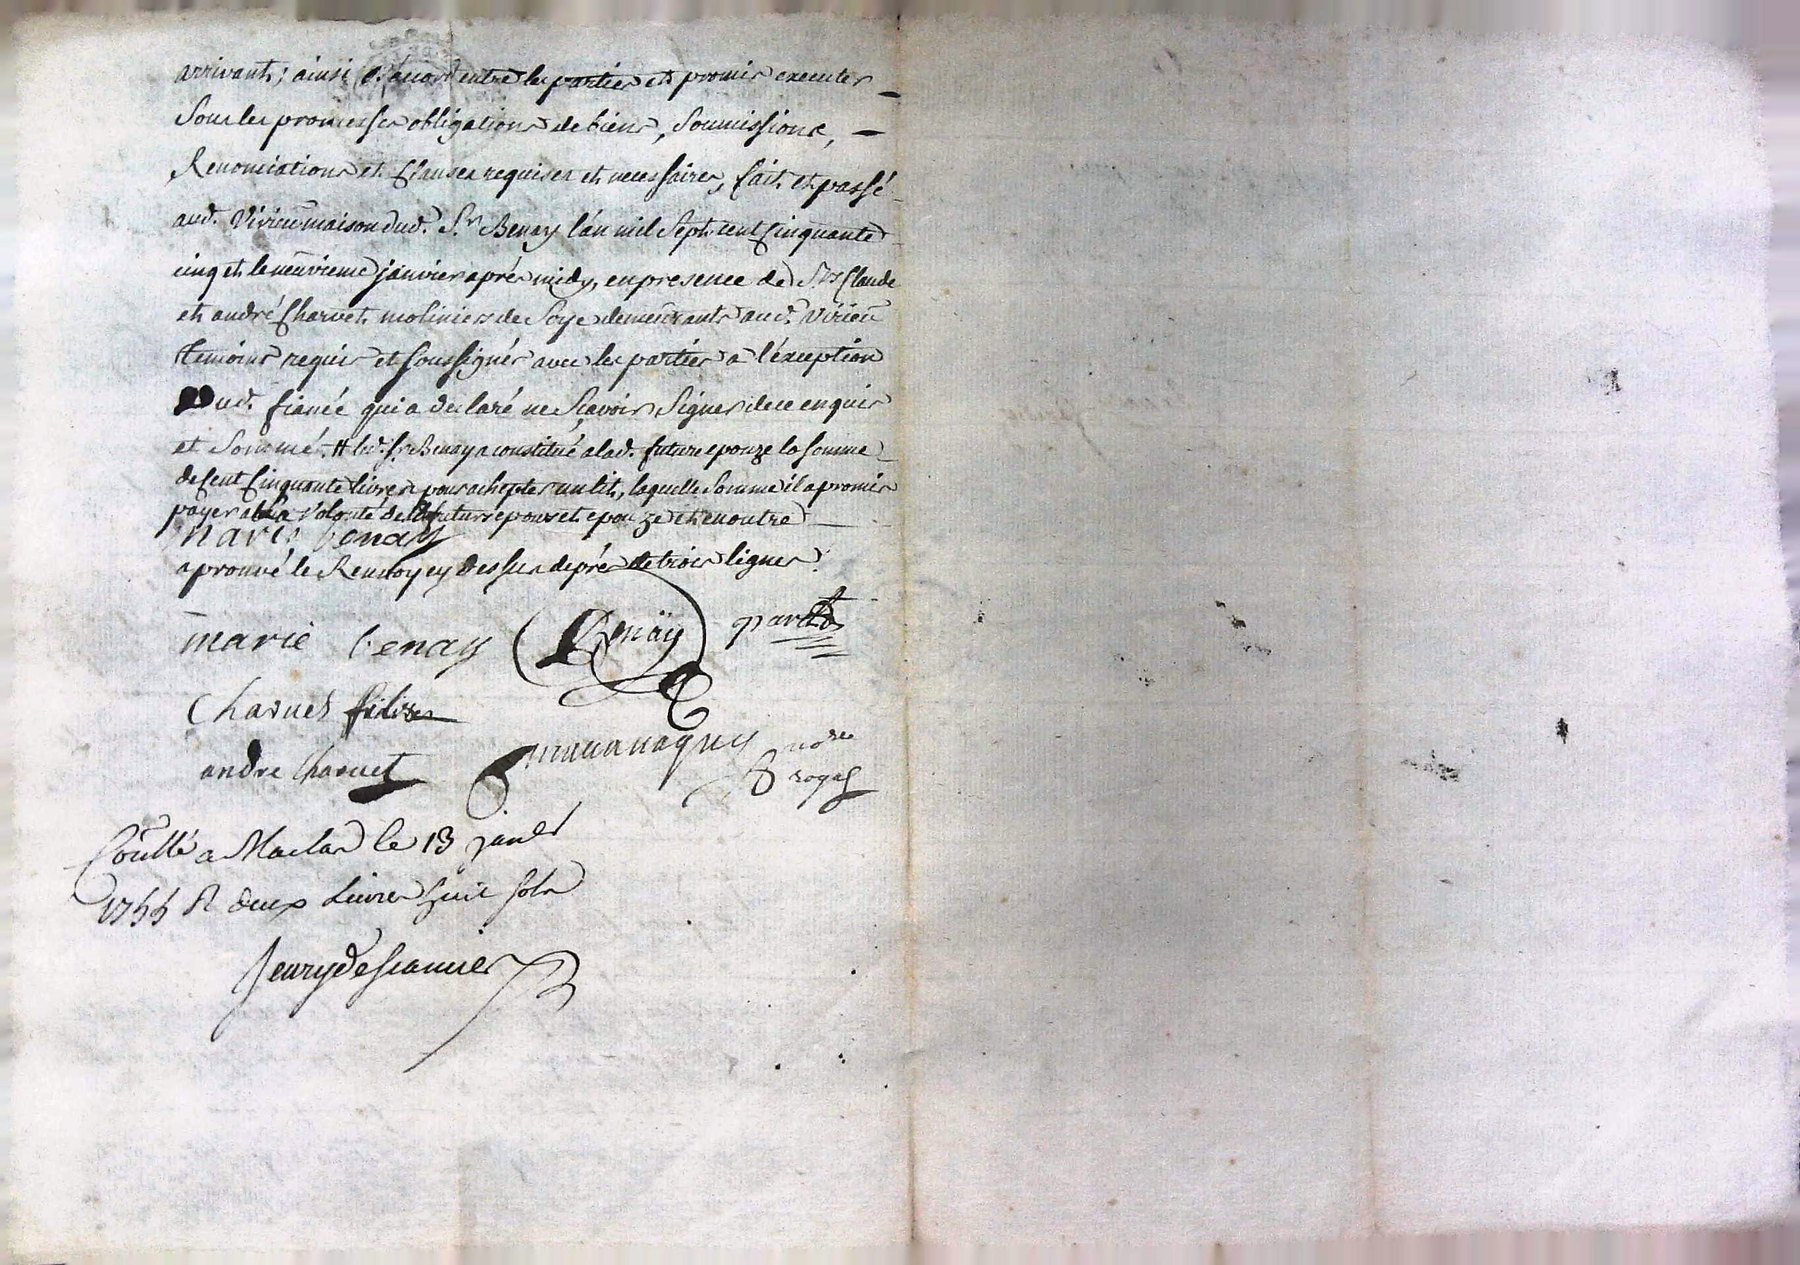 arrivant; ainsi d'acord entre les parties et promis executer
Sous les promesses obligations de biens, Soumissions,
Renonciations et Clauses requises et necessaires, fait et passé
aud. Virieu maison dud. Sr. Benay l'an mil Sept cent Cinquante
cinq et le neuvieme janvier aprés midy, en presence de Srs Claude
et andré Charvet moliniers de Soye demeurants aud. Virieu
temoins requis et soussignés avec les parties a l'éxception
Dud. fiancé qui a declaré ne Scavoir Signer de ce enquis
et Sommé. # led. Sr. Benay a constitué a lad. future epouze la somme
de Cent Cinquante livres pour achepter un lit, laquelle Somme il a promis
payer a la volonté des futurs epoux et epouze et en outre
marie benay
aprouvé le Renvoy cy dessus de prés de trois lignes.
marie benay Benaÿ
Charvet
andre Charvet nore
royal
Conllé a Maclas le 13 janer
1755 R deux Livres huit sols